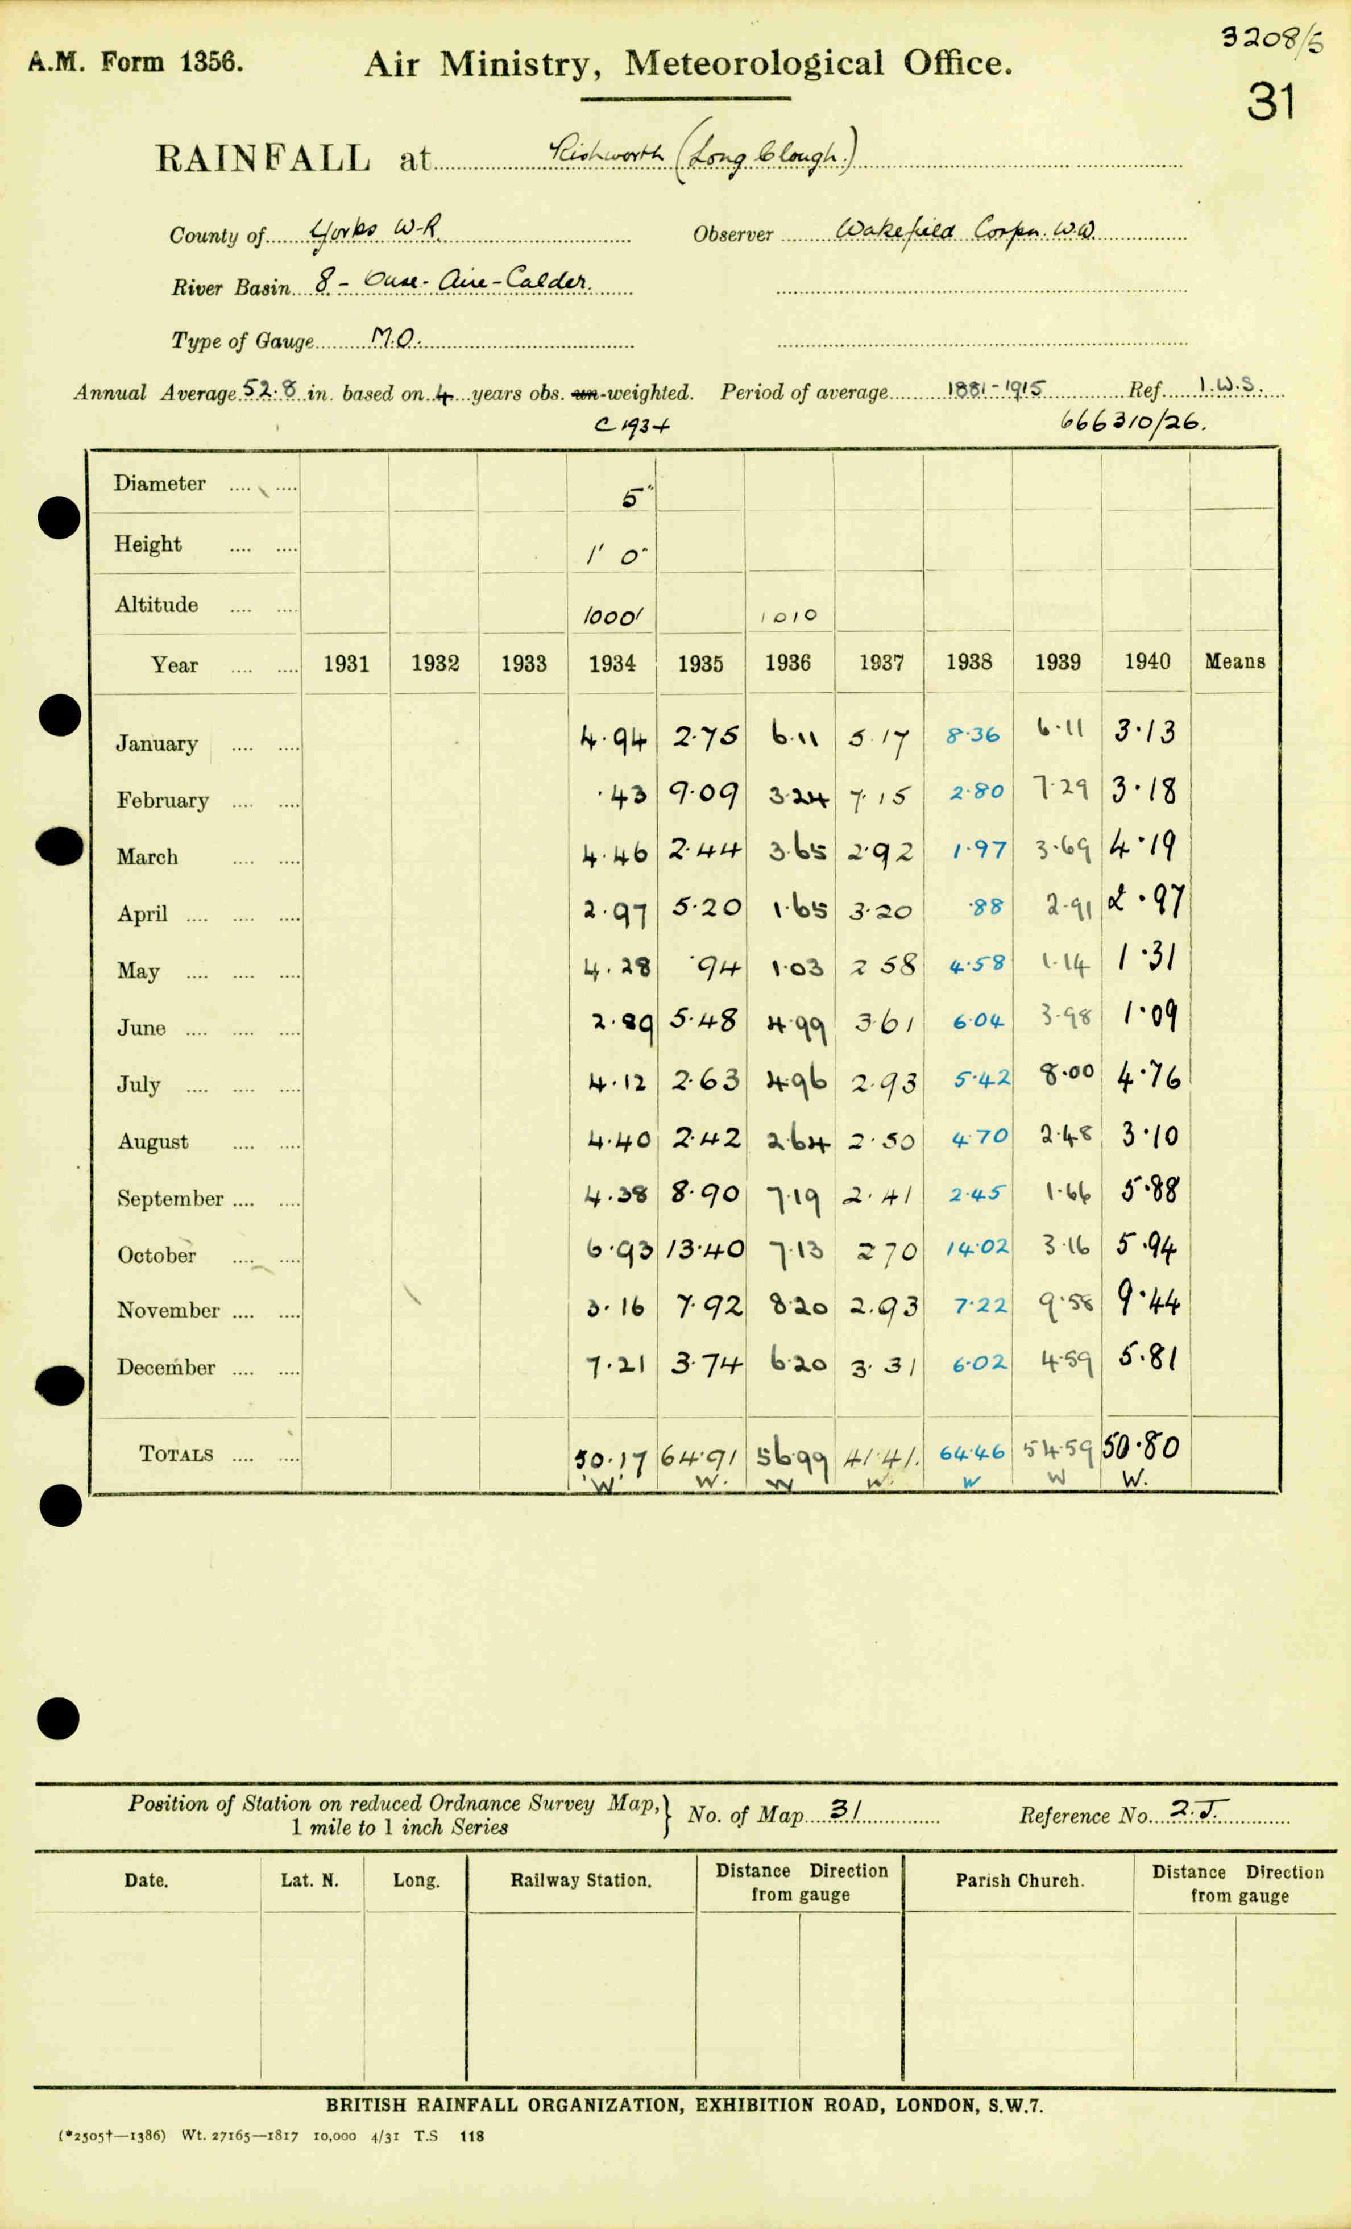 3208/5
A.M. Form 1356. Air Ministry, Meteorological Office.
31
RAINFALL at Rishworth (Long Clough.)
County of Yorks W.R. Observer Wakefield Corpn. W.W.
River Basin 8 - Ouse - Aire - Calder.
Type of Gauge M.O.
Annual Average 52.8 in. based on 4 years obs. un-weighted. Period of average 1881-1915 Ref. I.W.S.
C 1934 666310/26.
Diameter .... .... 5"
Height .... .... 1' 0"
Altitude .... .... 1000' 1010
Year .... .... 1931 1932 1933 1934 1935 1936 1937 1938 1939 1940 Means
January .... .... 4.94 2.75 6.11 5.17 8.36 6.11 3.13
February .... .... .43 9.09 3.24 7.15 2.80 7.29 3.18
March .... .... 4.46 2.44 3.65 2.92 1.97 3.69 4.19
April .... .... .... 2.97 5.20 1.65 3.20 .88 2.91 2.97
May .... .... .... 4.28 .94 1.03 2.58 4.58 1.14 1.31
June .... .... .... 2.89 5.48 4.99 3.61 6.04 3.98 1.09
July .... .... .... 4.12 2.63 4.96 2.93 5.42 8.00 4.76
August .... .... 4.40 2.42 2.64 2.50 4.70 2.48 3.10
September .... .... 4.38 8.90 7.19 2.41 2.45 1.66 5.88
October .... .... 6.93 13.40 7.13 2 70 14.02 3.16 5.94
November .... .... 3.16 7.92 8.20 2.93 7.22 9.58 9.44
December .... .... 7.21 3.74 6.20 3.31 6.02 4.59 5.81
TOTALS .... .... 50.17 64.91 56.99 41.41. 64.46 54.59 50.80
W W. W W. W W W.
Position of Station on reduced Ordnance Survey Map, } No. of Map 31 Reference No. 2.J.
1 mile to 1 inch Series
Date. Lat. N. Long. Railway Station. Distance Direction from gauge Parish Church. Distance Direction from gauge
BRITISH RAINFALL ORGANIZATION, EXHIBITION ROAD, LONDON, S.W.7.
(*2505†—1386) Wt. 27165—1817 10,000 4/31 T.S 118